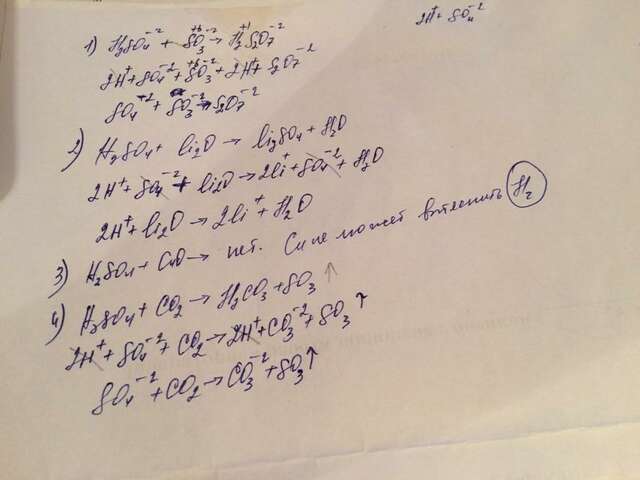 2H⁺ + SO₄⁻²
1) H₂SO₄⁻² + SO₃⁻² → H₂S₂O₇⁻²
2H⁺ + SO₄⁻² + SO₃⁻² + 2H⁺ + S₂O₇⁻²
SO₄⁺² + SO₃⁻² → S₂O₇⁻²
2) H₂SO₄ + Li₂O → Li₂SO₄ + H₂O
2H⁺ + SO₄⁻² + Li₂O → 2Li⁺ + SO₄⁻² + H₂O
2H⁺ + Li₂O → 2Li⁺ + H₂O
3) H₂SO₄ + CuO → нет. Cu не может вытеснить H₂
4) H₂SO₄ + CO₂ → H₂CO₃ + SO₃ ↑
2H⁺ + SO₄⁻² + CO₂ → 2H⁺ + CO₃⁻² + SO₃ ↑
SO₄⁻² + CO₂ → CO₃⁻² + SO₃ ↑